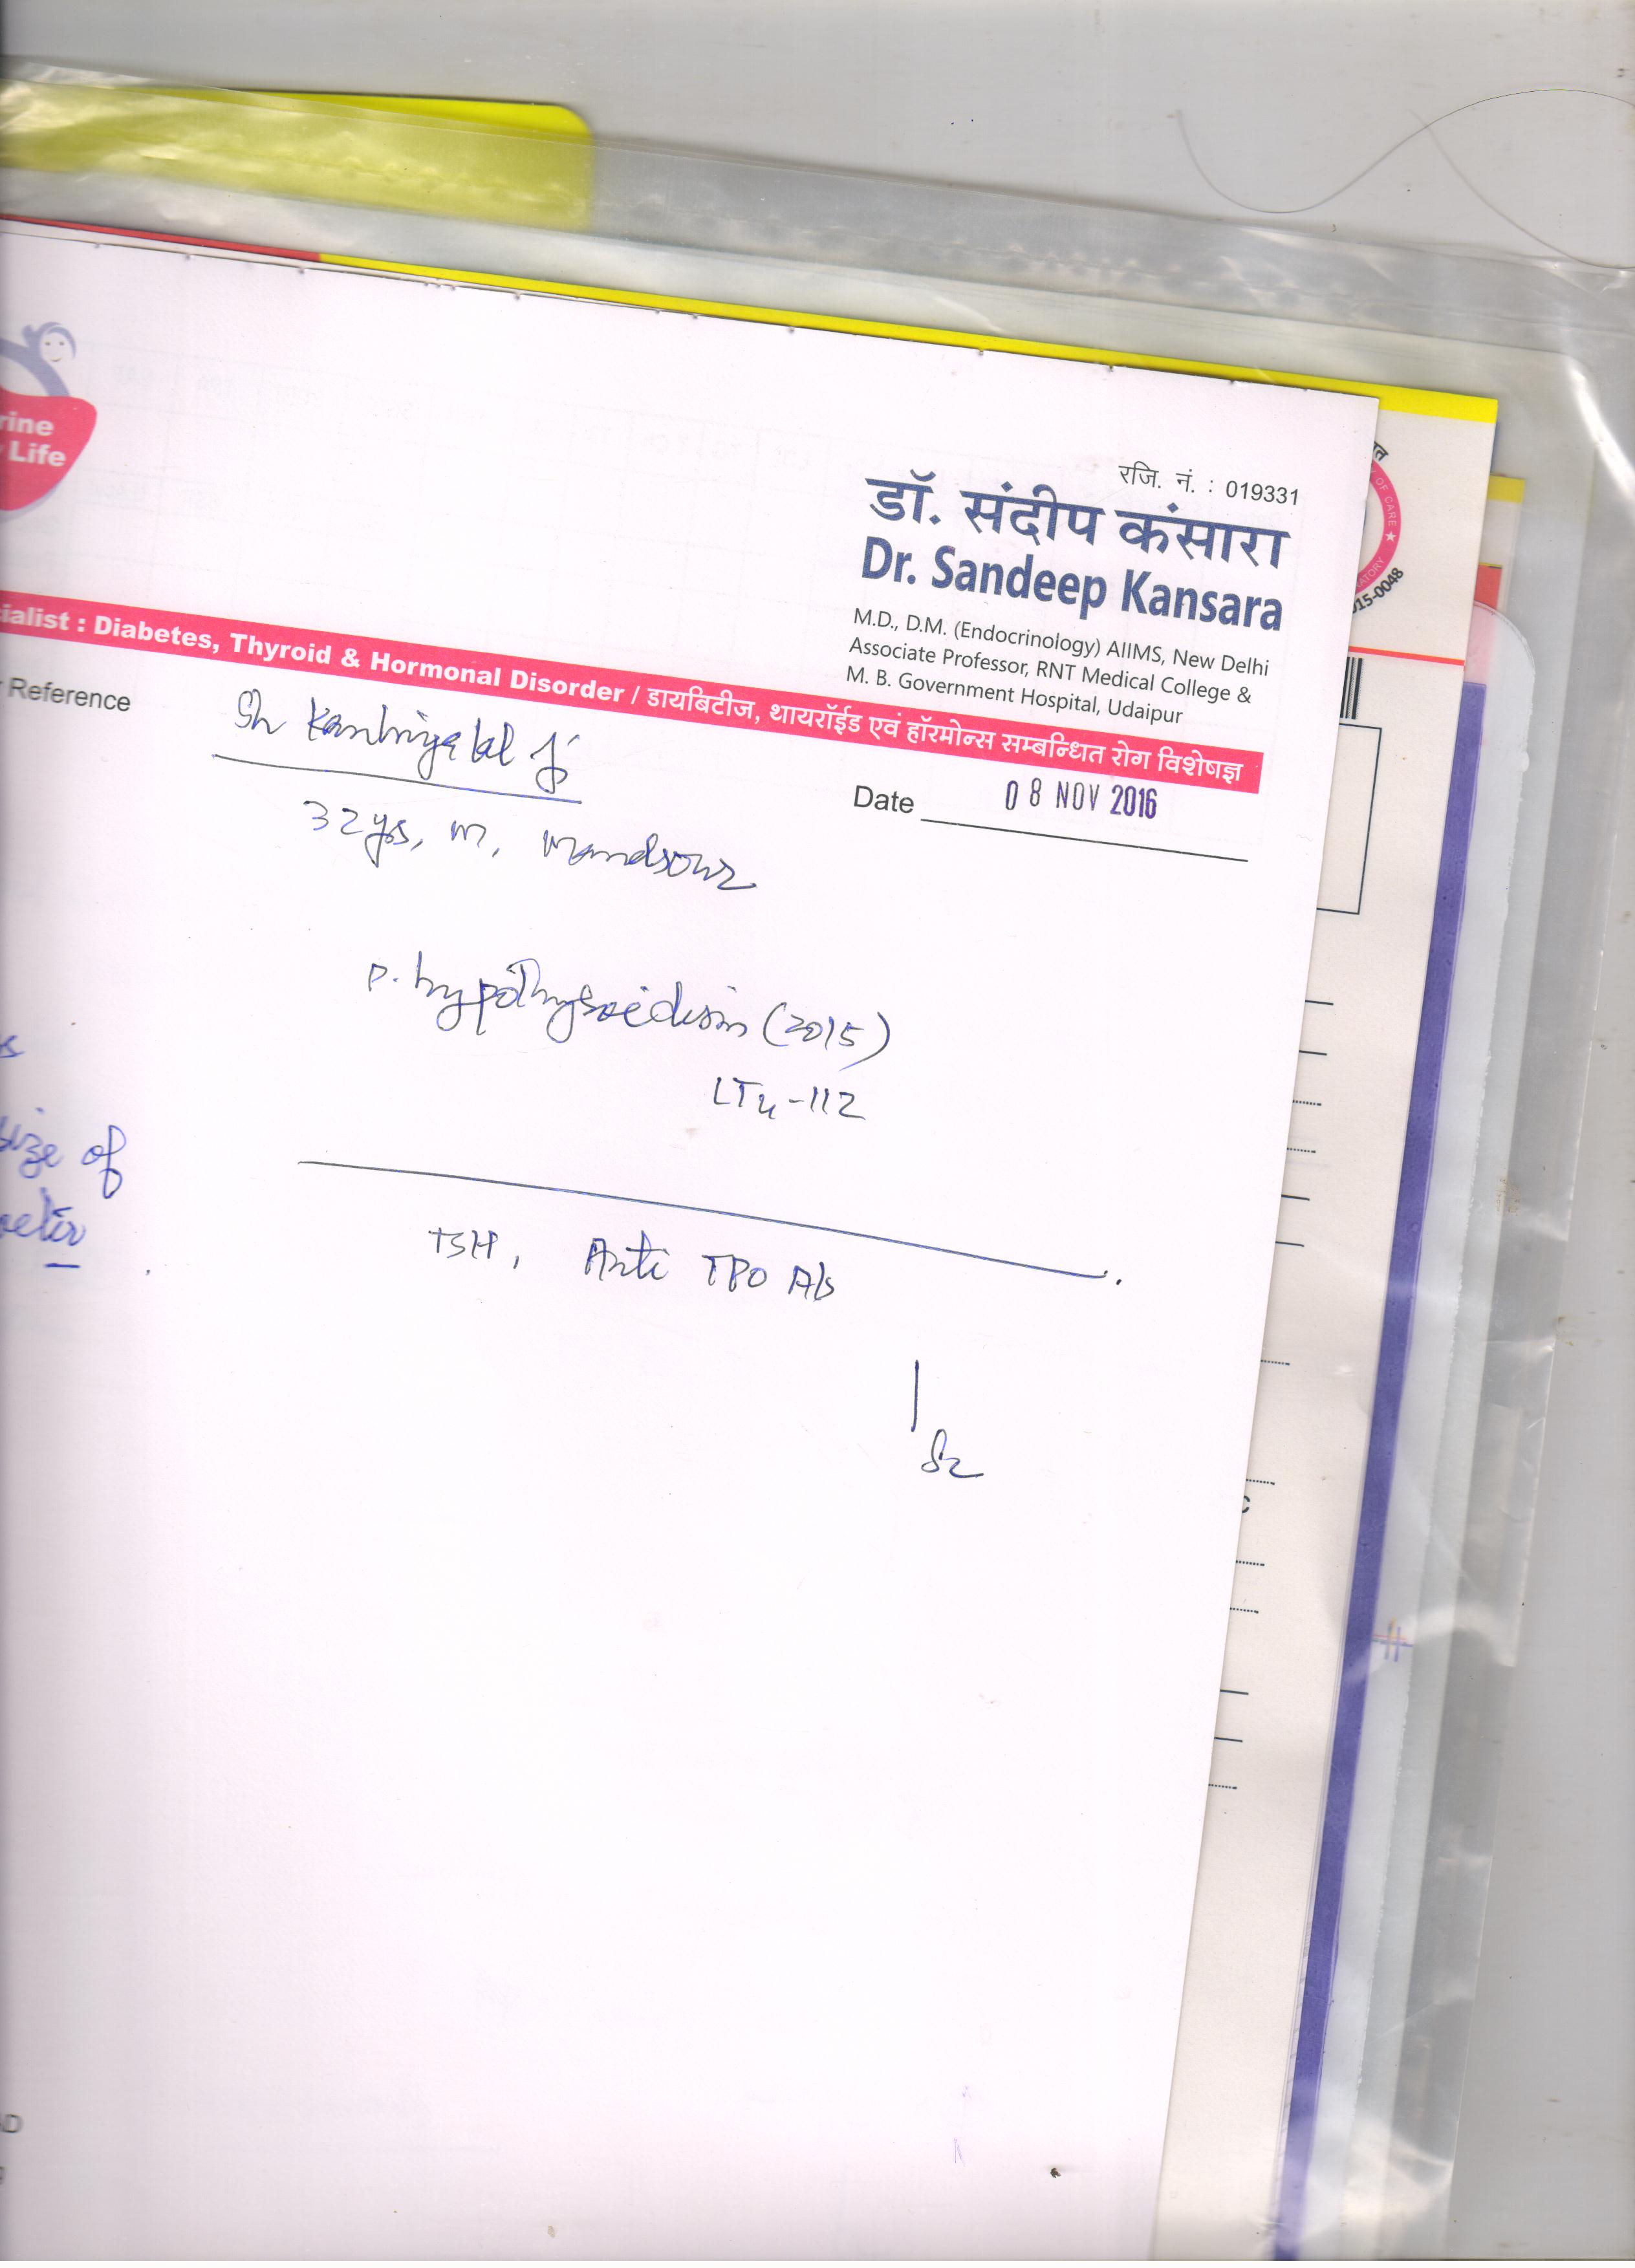 रजि. नं. : 019331
डॉ. संदीप कंसारा
Dr. Sandeep Kansara
M.D., D.M. (Endocrinology) AIIMS, New Delhi
Associate Professor, RNT Medical College &
M. B. Government Hospital, Udaipur
rine
Life
ialist : Diabetes, Thyroid & Hormonal Disorder / डायबिटीज, थायरॉईड एवं हॉरमोन्स सम्बन्धित रोग विशेषज्ञ
Reference
Date 08 NOV 2016
Sh Kanhiyalal ji
32 yrs, M, Mandsour
P. hypothyroidism (2015)
LT4 - 112
size of
TSH, Anti TPO Ab
OF CARE ★
15-0048